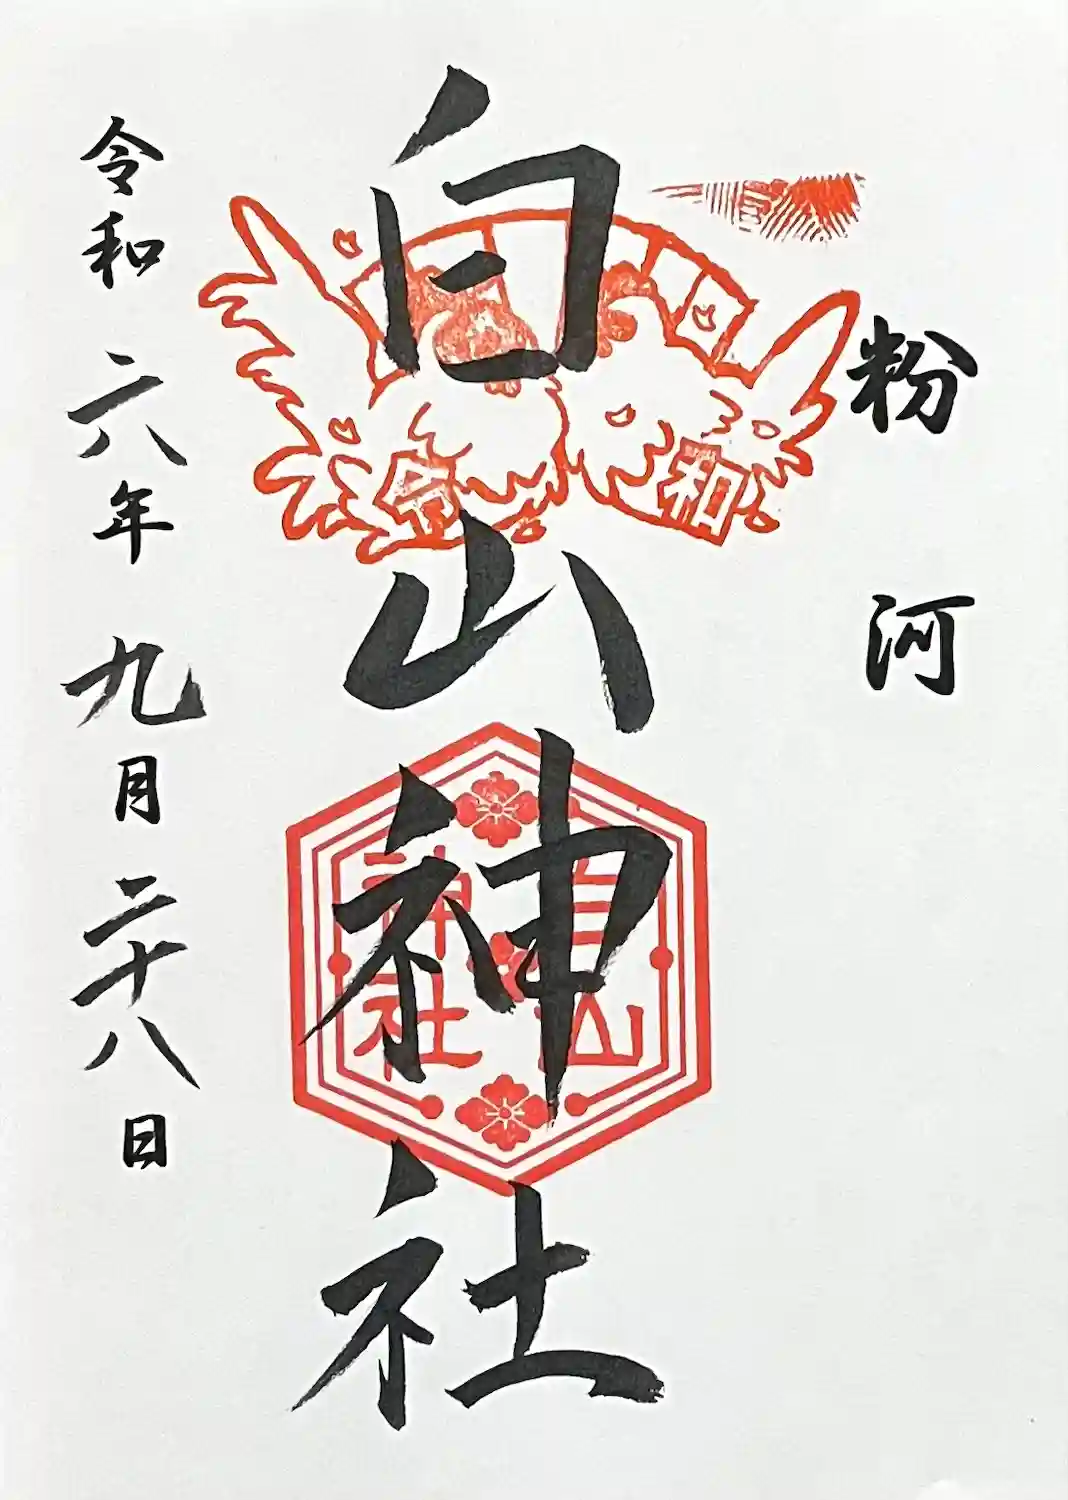 粉河
白山神社
令和
白山
神社
令和六年九月二十八日